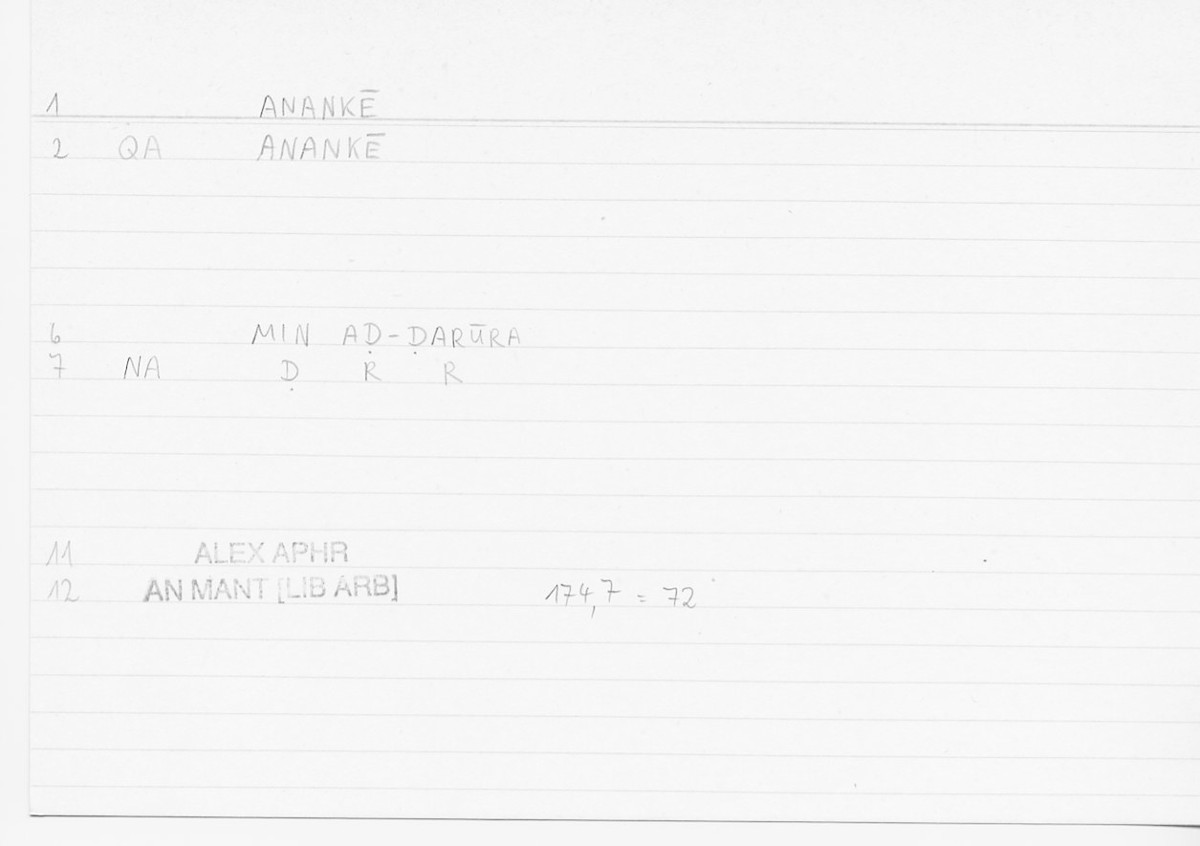 1 ANANKĒ
2 QA ANANKĒ
6 MIN AḌ-ḌARŪRA
7 NA Ḍ R R
11 ALEX APHR
12 AN MANT [LIB ARB] 174,7 = 72